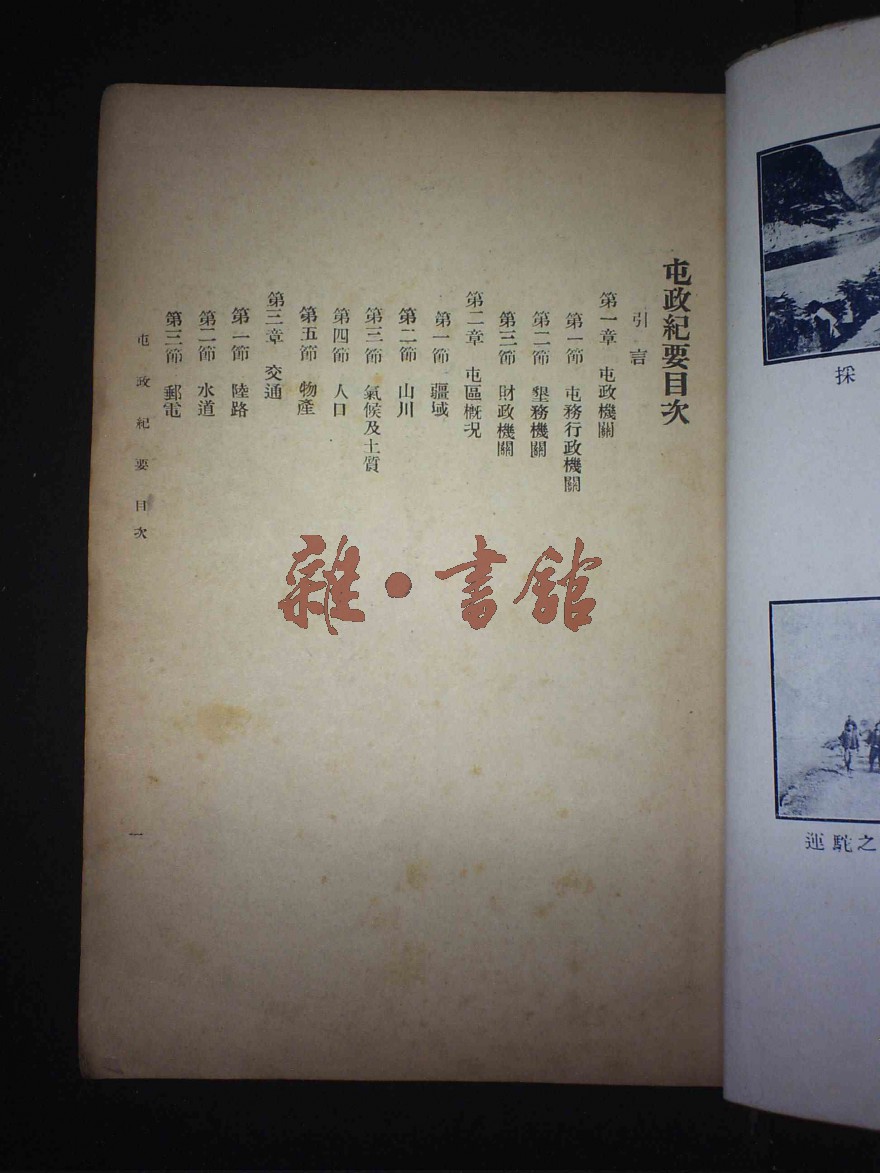 屯政紀要目次
引言
第一章 屯政機關
第一節 屯務行政機關
第二節 墾務機關
第三節 財政機關
第二章 屯區概况
第一節 疆域
第二節 山川
第三節 氣候及土質
第四節 人口
第五節 物產
第三章 交通
第一節 陸路
第二節 水道
第三節 郵電
屯政紀要目次
一
雜·書館
採
運駝之